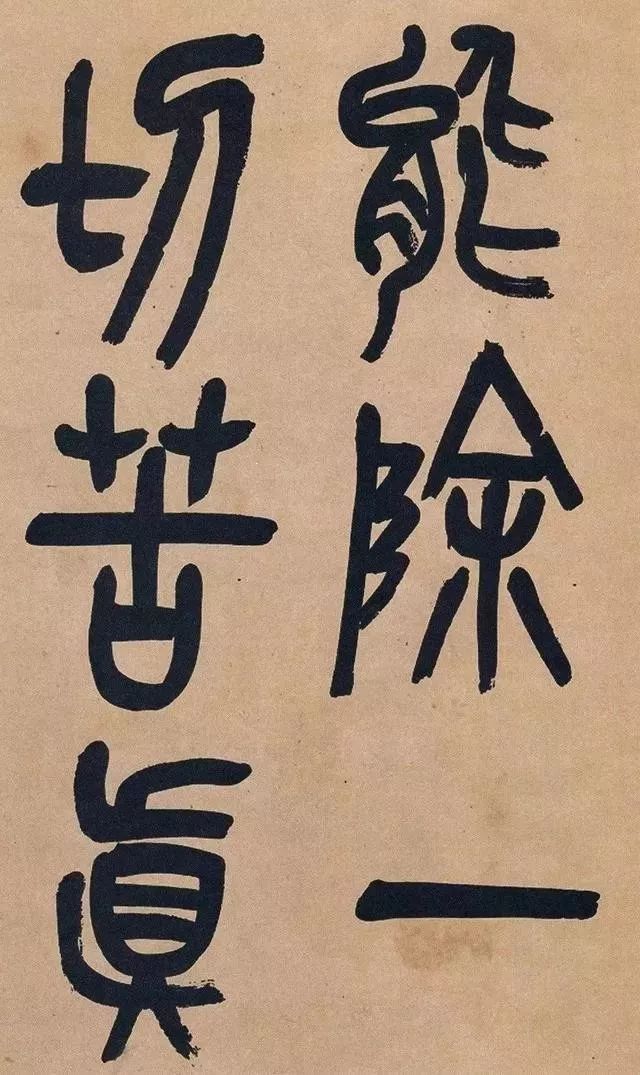 能除一
切苦真